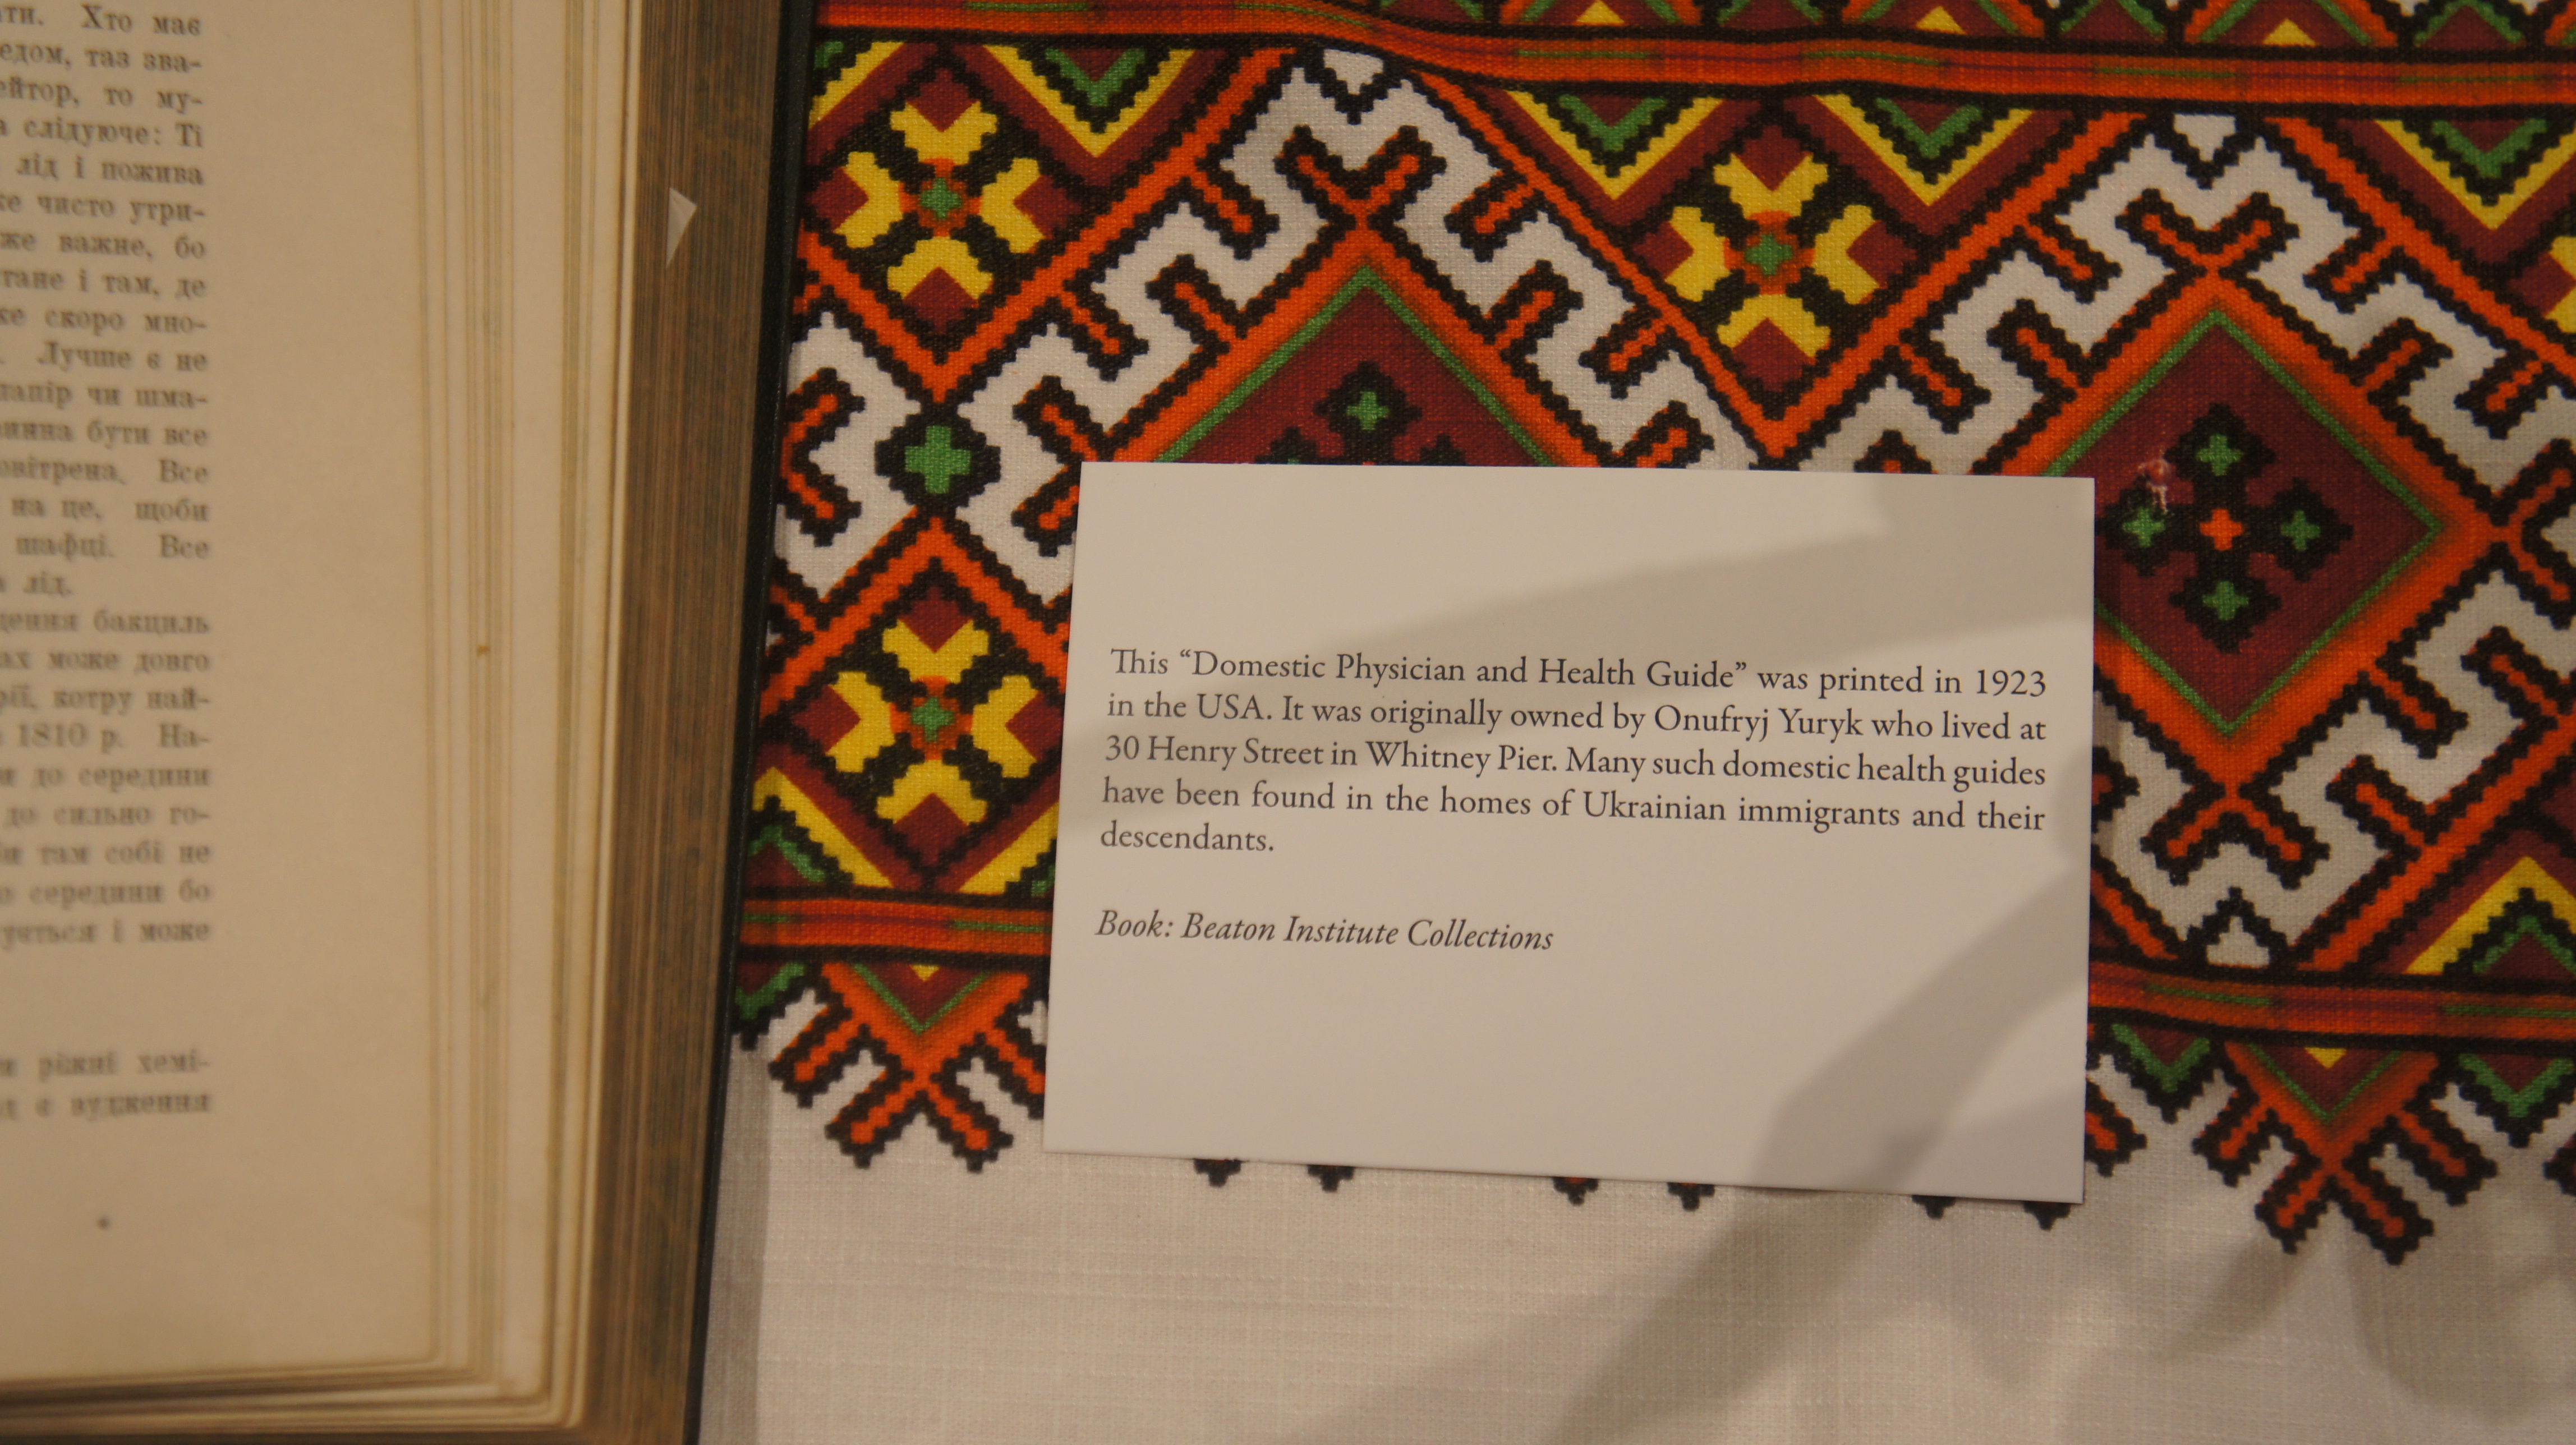 ати. Хто має
едом, таз зва-
ейтор, то му-
а слідуюче: Ті
лід і пожива
же чисто утри-
же важне, бо
тане і там, де
же скоро мно-
. Лучше є не
папір чи шма-
винна бути все
овітрена. Все
на це, щоби
шафці. Все
лід.
дення бакциль
ах може довго
рії, котру най-
1810 р. На-
и до середини
до сильно го-
и там собі не
о середини бо
ується і може
ріжні хемі-
є вудження
This “Domestic Physician and Health Guide” was printed in 1923
in the USA. It was originally owned by Onufryj Yuryk who lived at
30 Henry Street in Whitney Pier. Many such domestic health guides
have been found in the homes of Ukrainian immigrants and their
descendants.
Book: Beaton Institute Collections